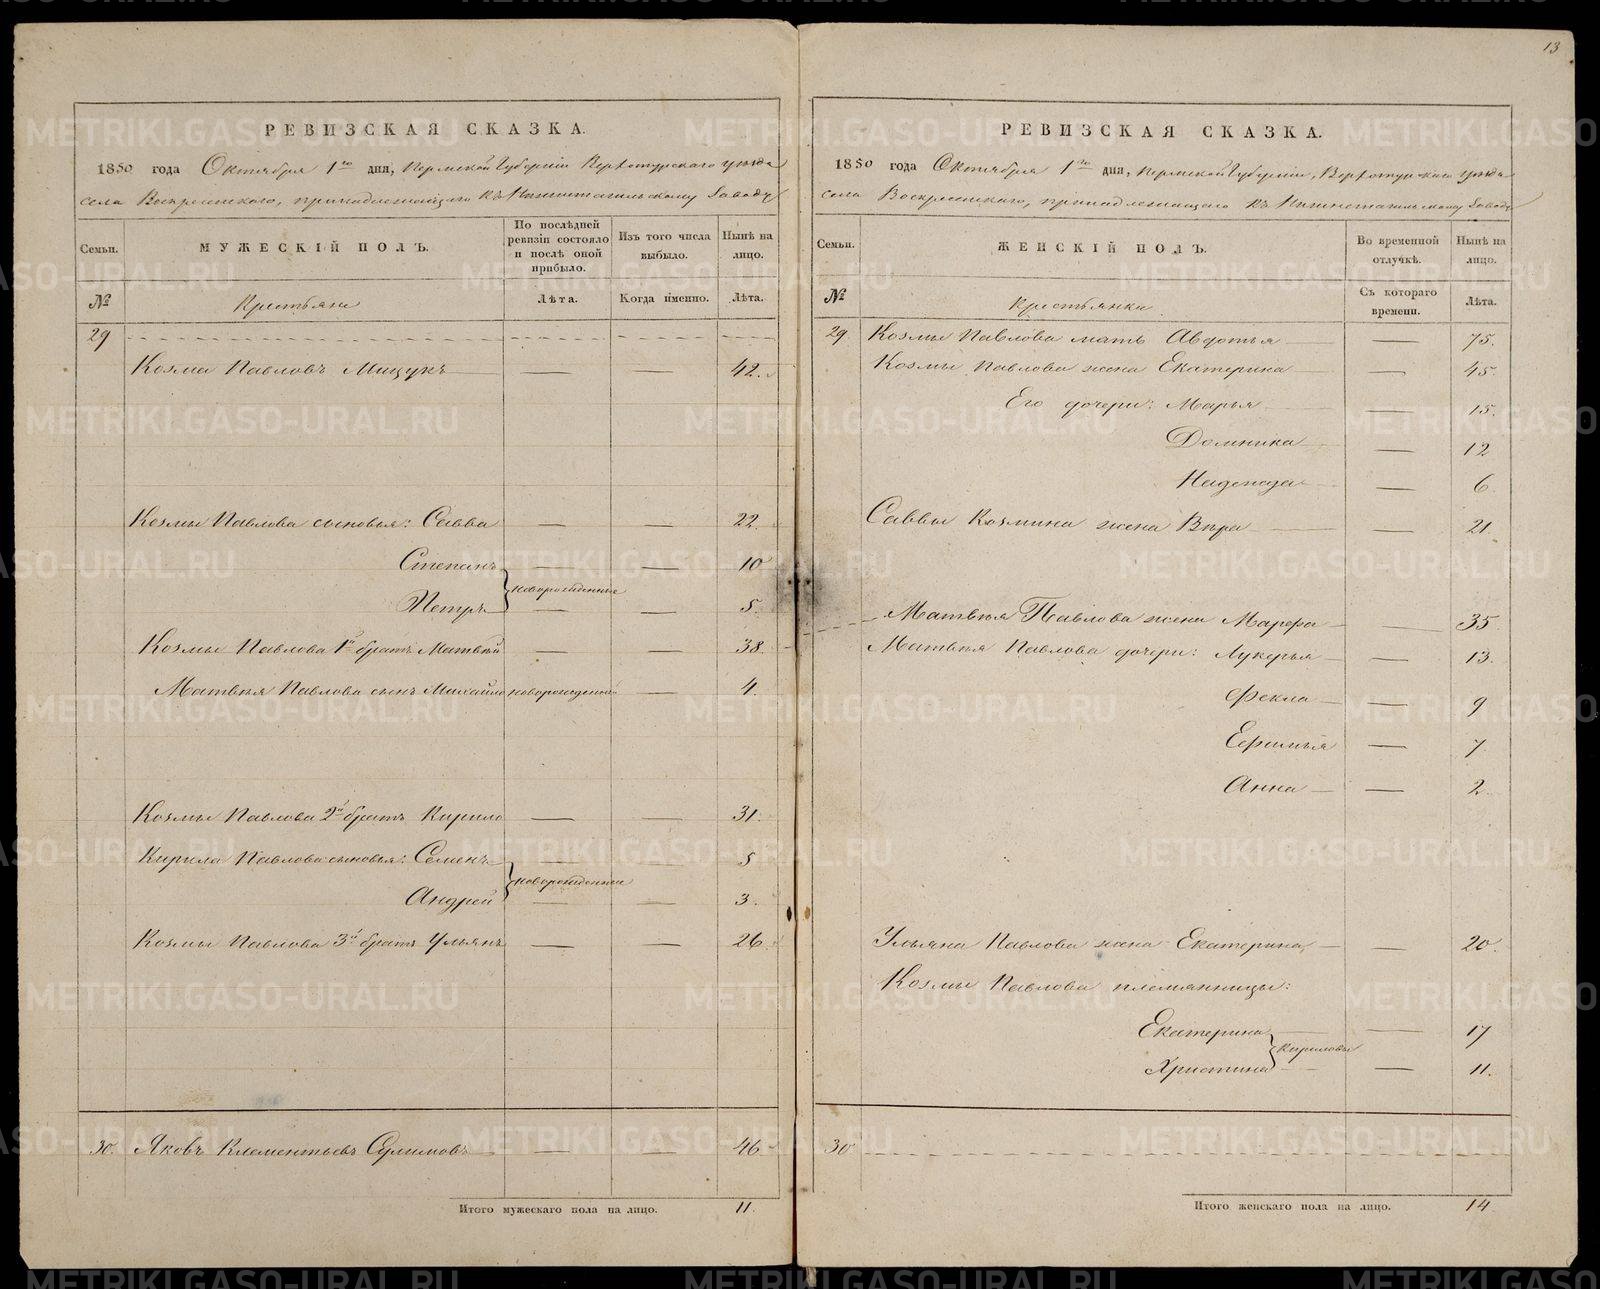 13
РЕВИЗСКАЯ СКАЗКА.
1850 года Октября 1го дня, Пермской Губерніи Верхотурскаго уѣзда
села Воскресенскаго, принадлежащаго къ Нижнетагильскому Заводу
Семьи.
МУЖЕСКІЙ ПОЛЪ.
По послѣдней ревизіи состояло и послѣ оной прибыло.
Изъ того числа выбыло.
Нынѣ на лицо.
№
Крестьяне
Лѣта.
Когда именно.
Лѣта.
29
Козма Павловъ Мицукъ — — 42.
Козмы Павлова сыновья: Савва — — 22.
Степанъ — — 10
новорожденные
Петръ — — 5.
Козмы Павлова 1й братъ Матвѣй — — 38.
Матвѣя Павлова сынъ Михайло новорожденный — 4.
Козмы Павлова 2й братъ Кирило — — 31.
Кирила Павлова сыновья: Семенъ — — 5
новорожденные
Андрей — — 3.
Козмы Павлова 3й братъ Ульянъ — — 26.
30. Яковъ Клементьевъ Сулимовъ — — 46.
Итого мужескаго пола на лицо. 11.
РЕВИЗСКАЯ СКАЗКА.
1850 года Октября 1го дня, Пермской Губерніи, Верхотурскаго уѣзда
села Воскресенскаго, принадлежащаго къ Нижнетагильскому Заводу
Семьи.
ЖЕНСКІЙ ПОЛЪ.
Во временной отлучкѣ.
Нынѣ на лицо.
№
Крестьянки
Съ котораго времени.
Лѣта.
29. Козмы Павлова мать Авдотья — 75.
Козмы Павлова жена Екатерина — 45.
Его дочери: Марья — 15.
Домника — 12
Надежда — 6.
Саввы Козмина жена Вѣра — 21.
Матвѣя Павлова жена Марфа — 35
Матвѣя Павлова дочери: Лукерья — 13.
Фекла — 9
Ефимья — 7.
Анна — 2.
Ульяна Павлова жена Екатерина — 20.
Козмы Павлова племянницы:
Екатерина — 17
Кириловы
Христина — 11.
30
Итого женскаго пола на лицо. 14
METRIKI.GASO-URAL.RU